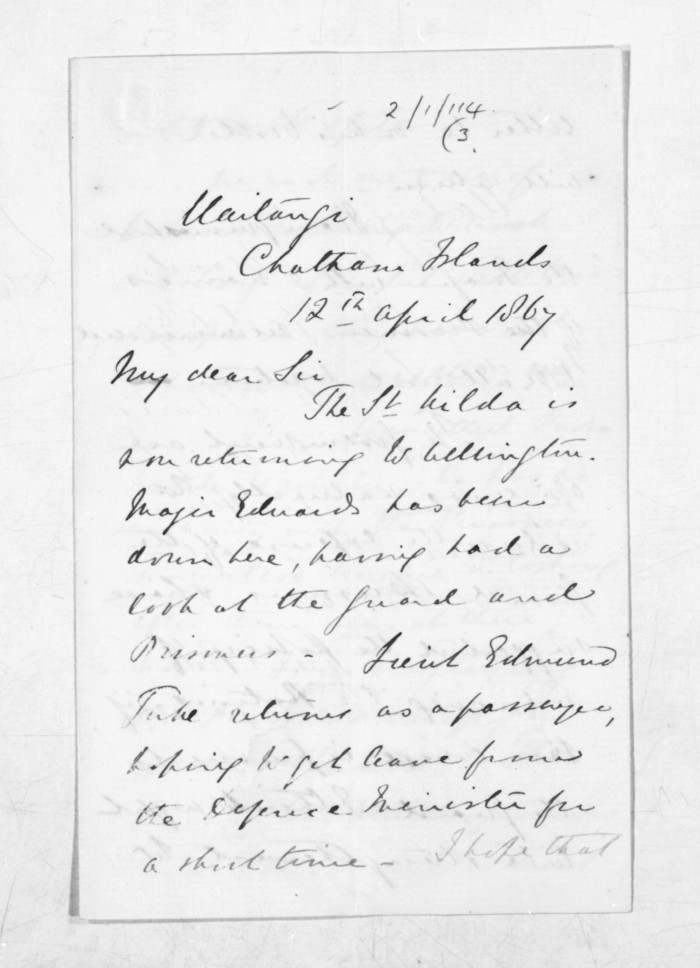 2/1/114
(3.
Waitangi
Chatham Islands
12th April 1867
My dear Sir
The St Kilda is
now returning to Wellington.
Major Edwards has been
down here, having had a
look at the Guard and
Prisoners - Lieut Edmund
Tuke returns as a passenger,
hoping to get leave from
the Defence Minister for
a short time - I hope that